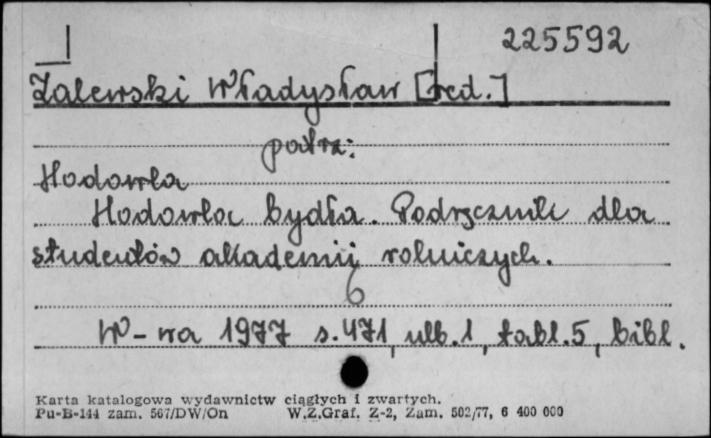 225592
Zalewski Władysław [red.]
patrz:
Hodowla
Hodowla bydła. Podręcznik dla
studentów akademii rolniczych.
W-wa 1977 s. 471, ulb. 1, tabl. 5, bibl.
Karta katalogowa wydawnictw ciągłych i zwartych.
Pu-B-144 zam. 567/DW/On W.Z.Graf. Z-2, Zam. 502/77, 6 400 000